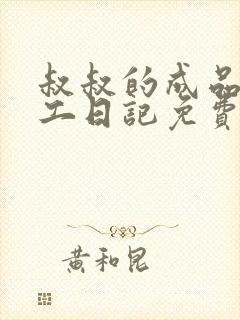 叔叔的成品
工日記免費
黃和昆